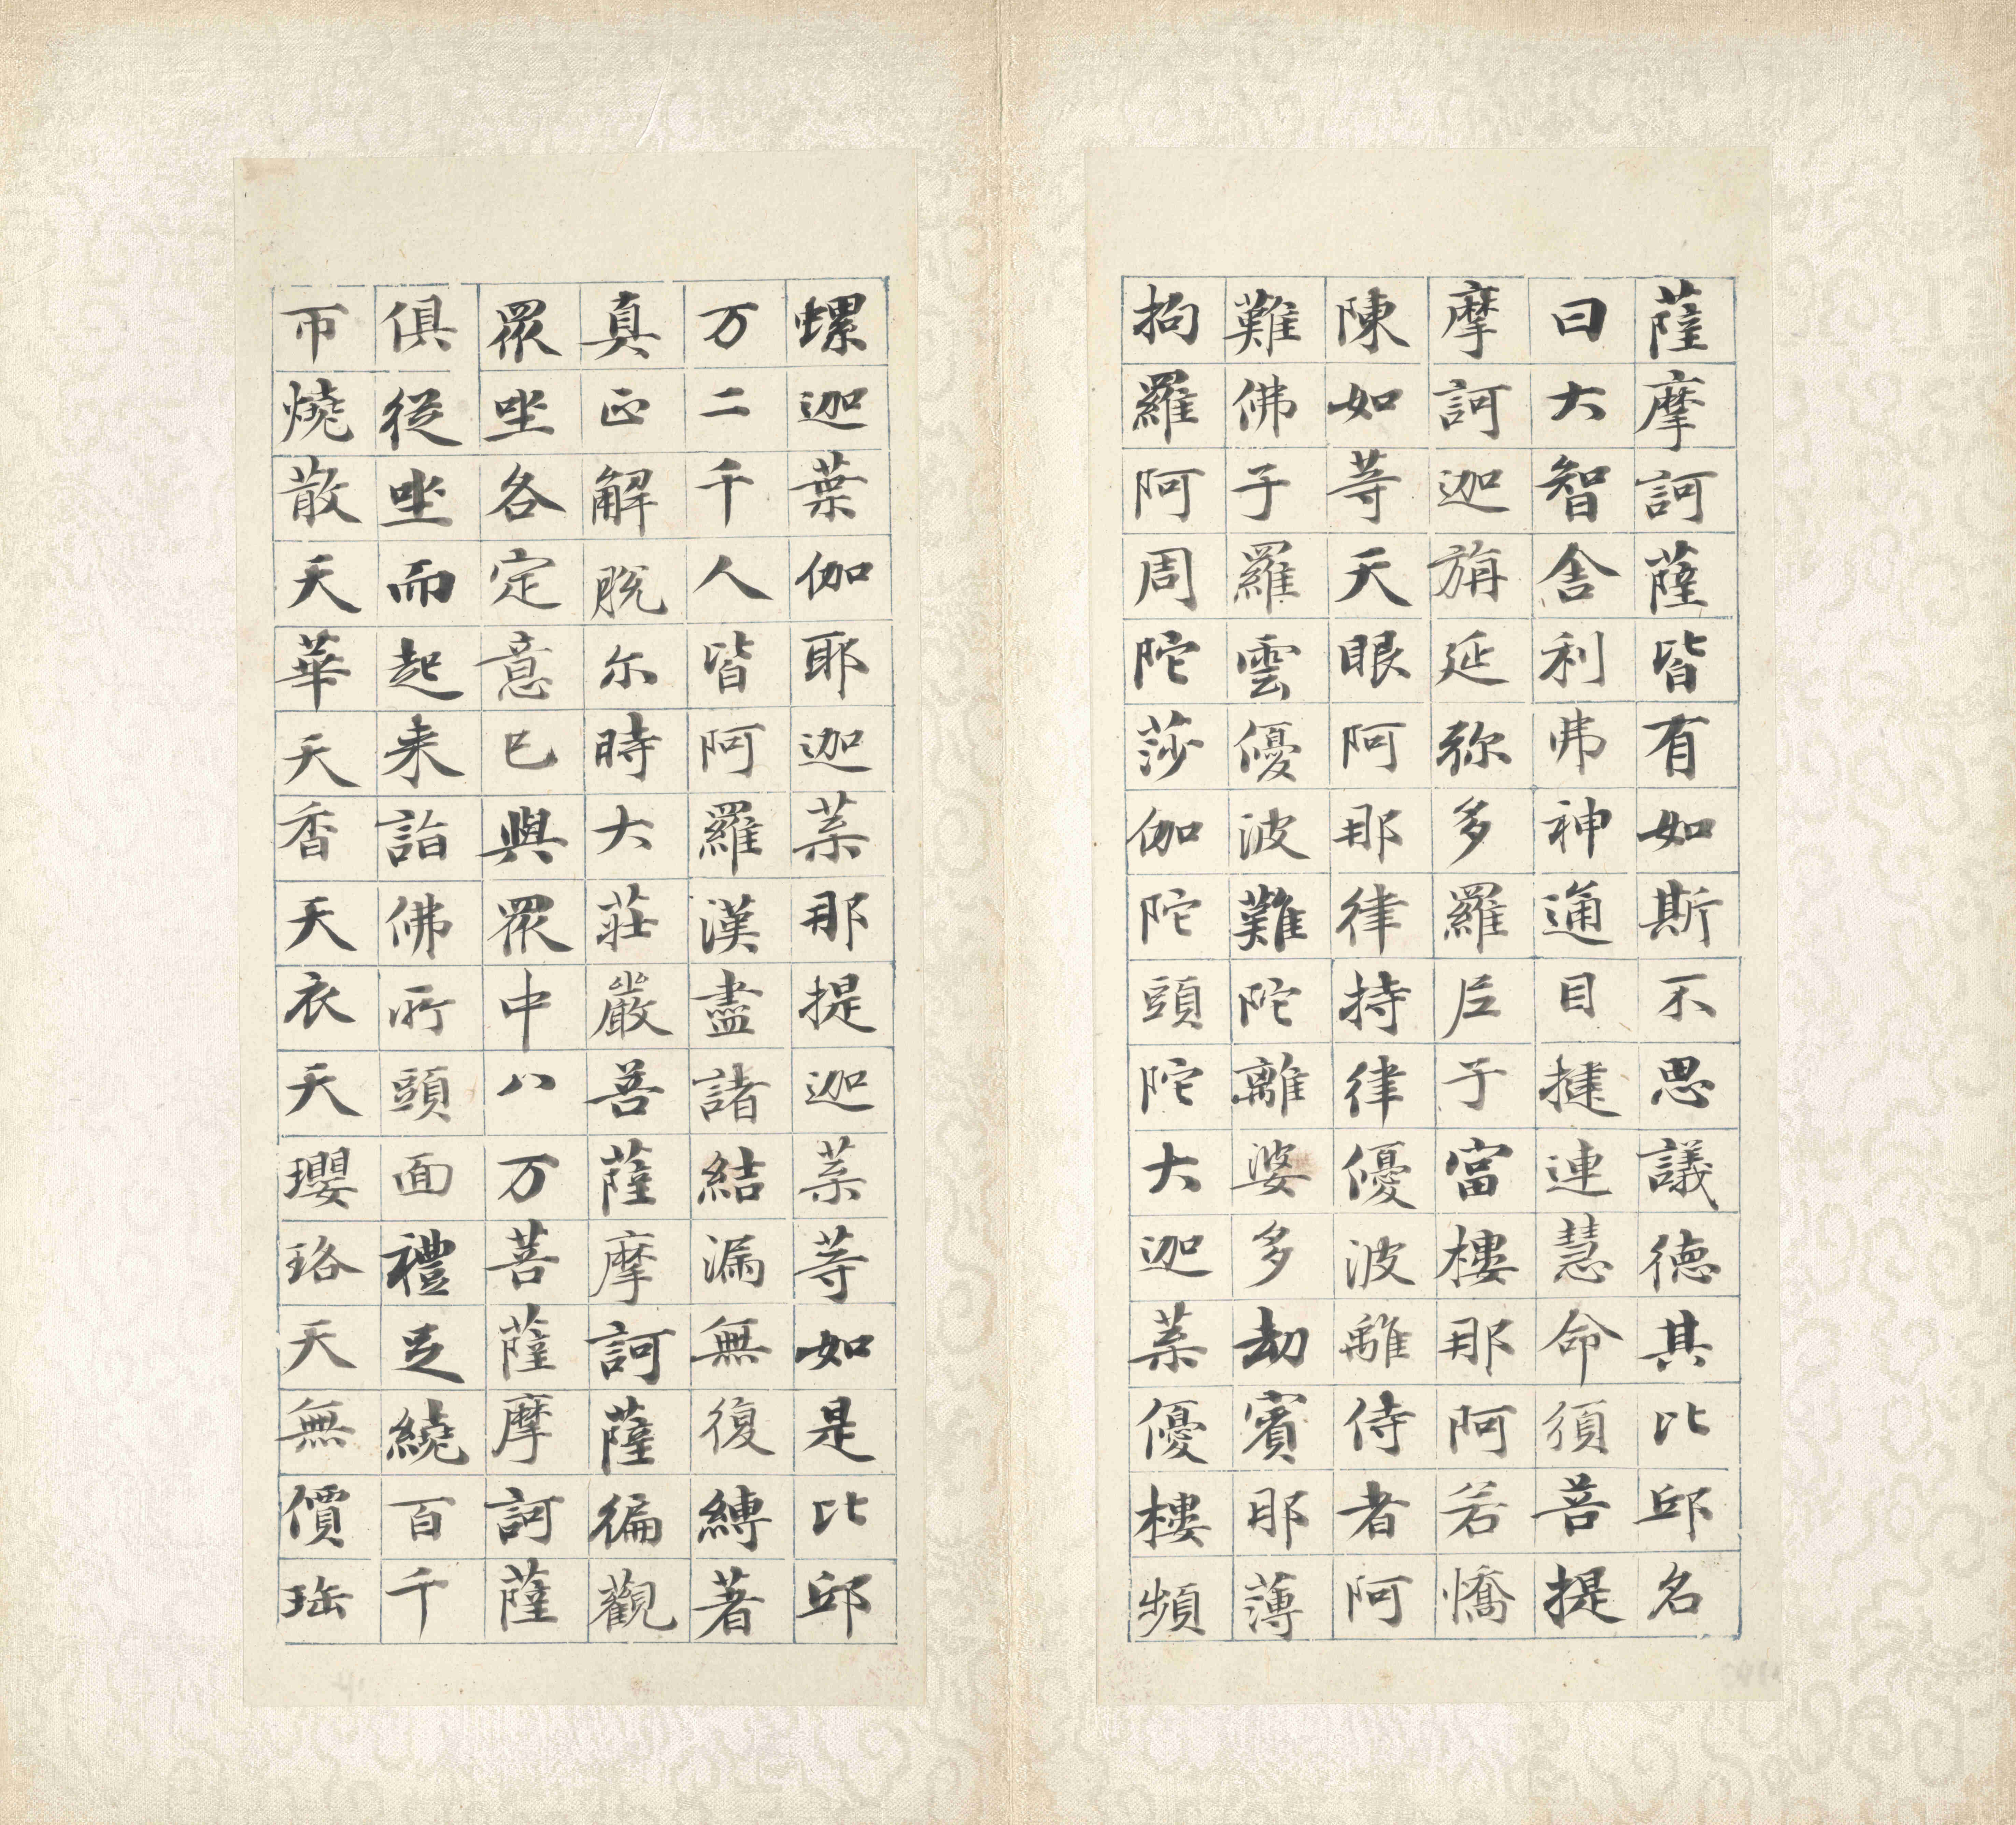 薩摩訶薩皆有如斯不思議德其比邱名
曰大智舍利弗神通目揵連慧命須菩提
摩訶迦旃延弥多羅𡰱子富樓那阿若憍
陳如䓁天眼阿那律持律優波離侍者阿
難佛子羅雲優波難陀離婆多劫賓那薄
拘羅阿周陀莎伽陀頭陀大迦葉優樓頻
螺迦葉伽耶迦葉那提迦葉䓁如是比邱
万二千人皆阿羅漢盡諸結漏無復縛著
真正解脫尔時大莊嚴菩薩摩訶薩徧觀
眾坐各定意已與眾中八万菩薩摩訶薩
俱從坐而起来詣佛所頭面禮足繞百千
帀燒散天華天香天衣天瓔珞天無價珤